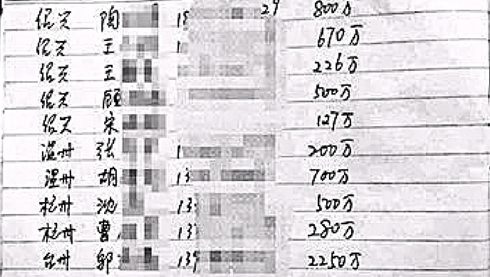 绍兴 陶 15 29 800万
绍兴 王 670万
绍兴 王 226万
绍兴 顾 500万
绍兴 宋 127万
温州 张 1 200万
温州 胡 13 700万
杭州 沈 13 500万
杭州 曹 13 280万
台州 郭 139 2250万